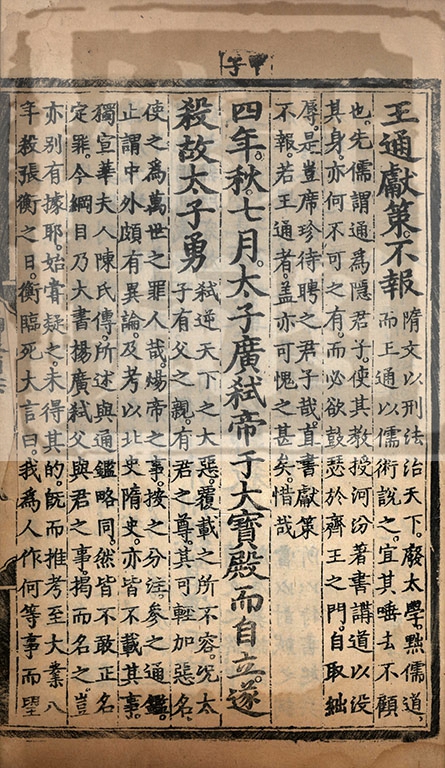 甲子
王通獻策不報
隋文以刑法治天下。廢太學。黜儒道。
而王通以儒術說之。宜其唾去不顧
也。先儒謂通為隱君子。使其教授河汾著書講道以没
其身。亦何不可之有。而必欲鼓瑟於齊王之門。自取絀
辱。是豈席珍待聘之君子哉。直書獻策
不報。若王通者。盖亦可愧之甚矣。惜哉
四年。秋。七月。太子廣弑帝于大寶殿而自立。遂
殺故太子勇
弑逆天下之大惡。覆載之所不容。况太
子有父之親。有君之尊。其可輕加惡名。
使之為萬世之罪人哉。煬帝之事。按之分注。參之通鑑。
止謂中外頗有異論。及考以北史隋史。亦皆不載其事。
獨宣華夫人陳氏傳。所述與通鑑略同。然皆不敢正名
定罪。今綱目乃大書揚廣弑父與君之事。揭而名之。豈
亦别有據耶。始嘗疑之。未得其的。旣而推考至大業八
年殺張衡之日。衡臨死大言曰。我為人作何等事而望